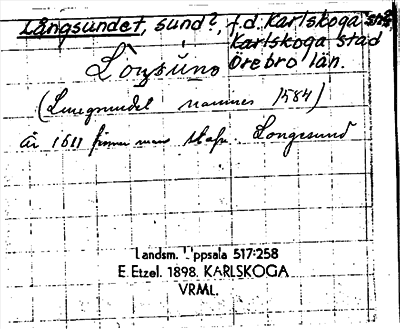 Långsundet, sund?, f.d. Karlskoga sn,
Karlskoga stad
Örebro län.
(Lungsundet 1584)
År 1611 finner man Longesund
Landsm. Uppsala 517:258
E. Etzel. 1898. KARLSKOGA
VRML.